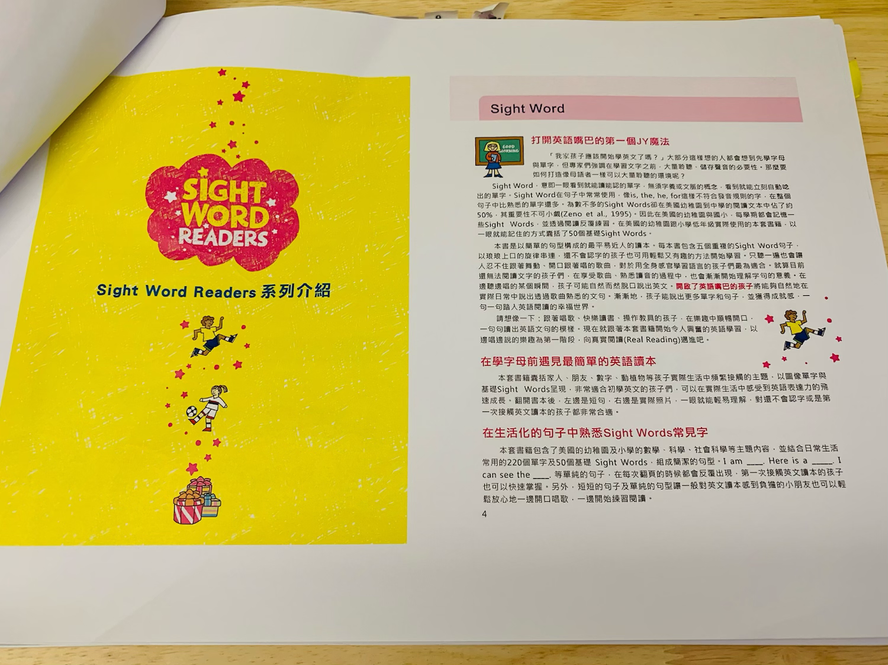 SIGHT
WORD
READERS
Sight Word Readers 系列介紹
Sight Word
GOOD
MORNING
打開英語嘴巴的第一個JY魔法
「我家孩子應該開始學英文了嗎？」大部分這樣想的人都會想到先學字母
與單字，但專家們強調在學習文字之前，大量聆聽、儲存聲音的必要性。那麼要
如何打造像母語者一樣可以大量聆聽的環境呢？
Sight Word，意即一眼看到就能讀能認的單字，無須字義或文脈的概念，看到就能立刻自動唸
出的單字。Sight Word在句子中常常使用，像is, the, he, for這樣不符合發音規則的字，在整個
句子中比熟悉的單字還多。為數不多的Sight Words卻在美國幼稚園到中學的閱讀文本中佔了約
50%，其重要性不可小覷(Zeno et al., 1995)。因此在美國的幼稚園與國小，每學期都會記機一
些Sight Words，並透過閱讀反覆練習。在美國的幼稚園跟小學低年級實際使用的本套書籍，以
一眼就能記住的方式囊括了50個基礎Sight Words。
本書是以簡單的句型構成的最平易近人的讀本。每本書包含五個重複的Sight Word句子，
以琅琅上口的旋律串連，還不會認字的孩子也可用輕鬆又有趣的方法開始學習。只聽一遍也會讓
人忍不住跟著舞動、開口跟著唱的歌曲，對於用全身感官學習語言的孩子們最為適合。就算目前
還無法閱讀文字的孩子們，在享受歌曲、熟悉讀音的過程中，也會漸漸開始理解字句的意義。在
邊聽邊唱的某個瞬間，孩子可能自然而然脫口說出英文。開啟了英語嘴巴的孩子將能夠自然地在
實際日常中說出透過歌曲熟悉的文句。漸漸地，孩子能說出更多單字和句子，並獲得成就感，一
句一句踏入英語閱讀的幸福世界。
請想像一下：跟著唱歌、快樂讀書、操作教具的孩子，在樂趣中順暢開口，
一句句讀出英語文句的模樣。現在就跟著本套書籍開始令人興奮的英語學習，以
邊唱邊說的樂趣為第一階段，向真實閱讀(Real Reading)邁進吧。
在學字母前遇見最簡單的英語讀本
本套書籍囊括家人、朋友、數字、動植物等孩子實際生活中頻繁接觸的主題，以圖像單字與
基礎Sight Words呈現，非常適合初學英文的孩子們，可以在實際生活中感受到英語表達力的飛
速成長。翻開書本後，左邊是短句，右邊是實際照片，一眼就能輕易理解，對還不會認字或是第
一次接觸英文讀本的孩子都非常合適。
在生活化的句子中熟悉Sight Words常見字
本套書籍包含了美國的幼稚園及小學的數學、科學、社會科學等主題內容，並結合日常生活
常用的220個單字及50個基礎 Sight Words，組成簡潔的句型。I am ____. Here is a ____. I
can see the ____. 等單純的句子，在每次翻頁的時候都會反覆出現，第一次接觸英文讀本的孩子
也可以快速掌握。另外，短短的句子及單純的句型讓一般對英文讀本感到負擔的小朋友也可以輕
鬆放心地一邊開口唱歌，一邊開始練習閱讀。
4